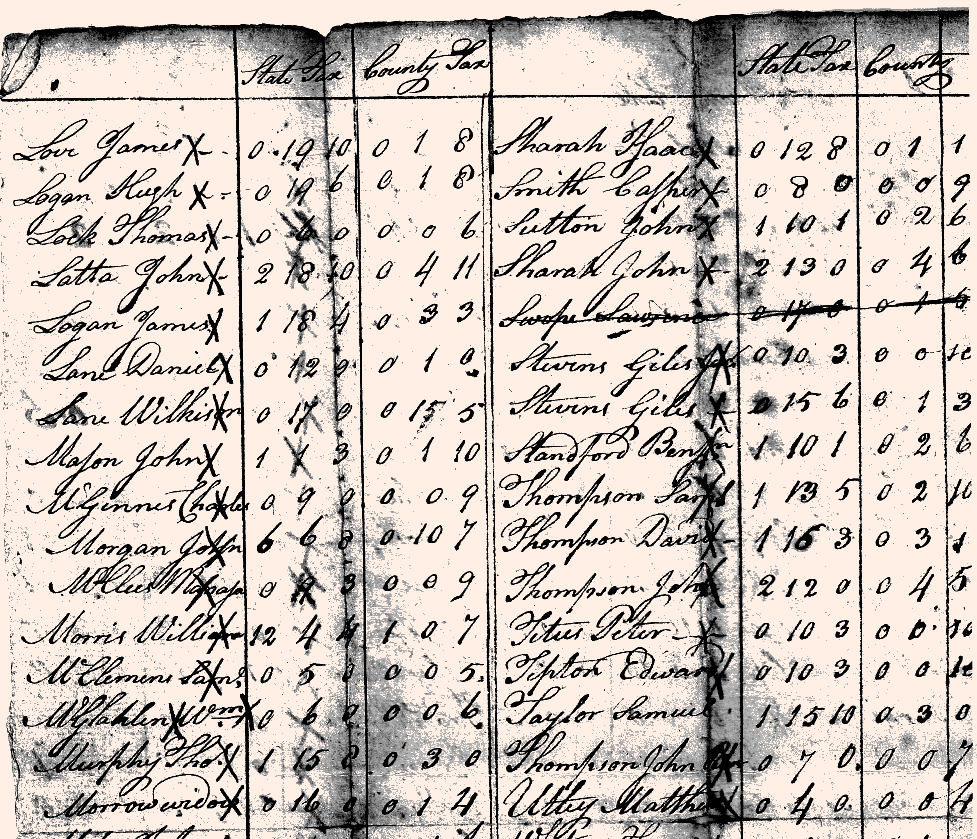 State Tax County Tax State Tax County
Love James X - 0 19 10 0 1 8 Sharah Isaac X 0 12 8 0 1 1
Logan Hugh X - 0 19 6 0 1 8 Smith Casper X 0 8 0 0 0 9
Lock Thomas X - 0 6 0 0 0 6 Sutton John X 1 10 1 0 2 6
Latta John X - 2 18 10 0 4 11 Sharah John X 2 13 0 0 4 6
Logan James X 1 18 4 0 3 3 Swope 0 17 0 0 1 6
Lane Daniel X 0 12 0 1 0 Stevens Giles X 0 10 3 0 0
Lane Wilkison 0 17 0 0 15 5 Stevens Giles X 0 15 6 0 1 3
Mason John X 1 1 3 0 1 10 Standford Benjn 1 10 1 0 2
McGinnes Charles 0 9 0 0 0 9 Thompson 1 13 5 0 2
Morgan John 6 6 8 0 10 7 Thompson David X 1 15 3 0 3
0 3 0 0 9 Thompson John X 2 12 0 0 4 5
Morris William X 12 4 4 1 0 7 Titus Peter X 0 10 3 0 0
McClemens Saml X 0 5 0 0 0 5 Tipton Edward X 0 10 3 0 0
Wm X 0 6 0 0 0 6 Taylor Samuel 1 15 10 0 3 0
Murphy Tho. X 1 15 8 0 3 0 Thompson John 0 7 0 0 0 7
Morrow widow X 0 16 0 0 1 4 Utley Matthew X 0 4 0 0 0 4